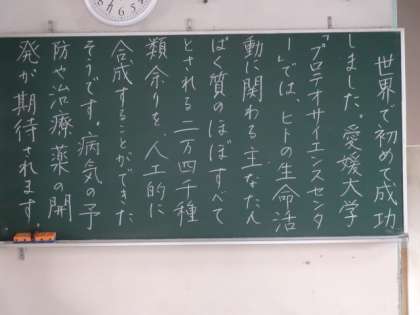 世界で初めて成功
しました。愛媛大学
「プロテオサイエンスセンタ
ー」では、ヒトの生命活
動に関わる主なたん
ぱく質のほぼすべて
とされる二万四千種
類余りを、人工的に
合成することができた
そうです。病気の予
防や治療薬の開
発が期待されます。